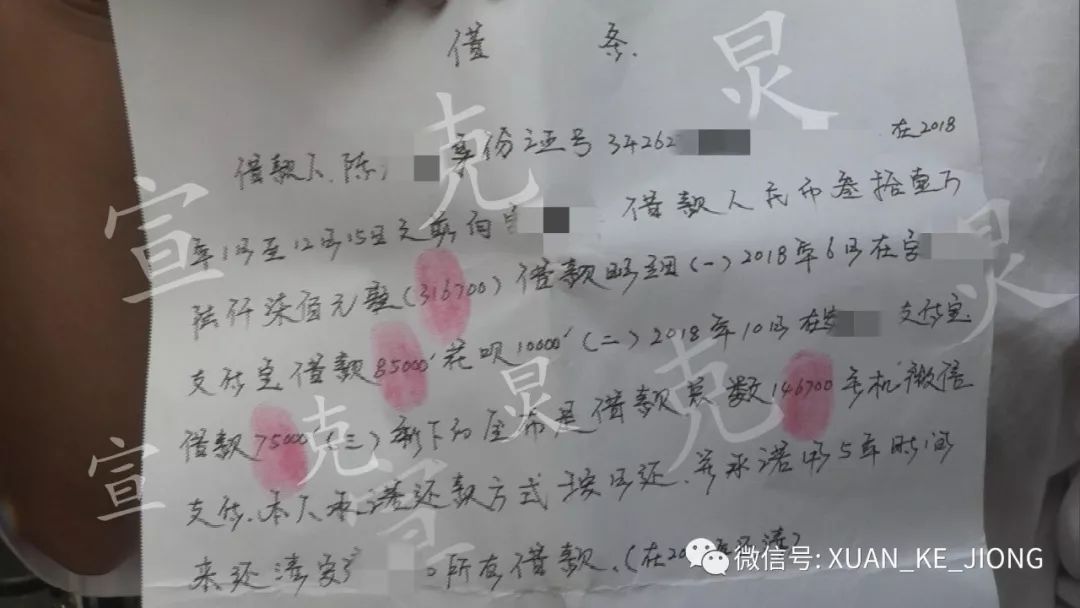 借条.
借款人.陈 身份证号34262 在2018
年1月至12月15日之前向 借款人民币叁拾壹万
陆仟柒佰元整(316700)借款明细(一)2018年6月在
支付宝借款85000花呗10000(二)2018年10月在 支付宝
借款75000(三)剩下的 是借款总数146700手机微信
支付.本人承诺还款方式按月还.并承诺用5年时间
来还清 所有借款.(在20
宣克炅
宣克炅
宣克炅
微信号: XUAN_KE_JIONG